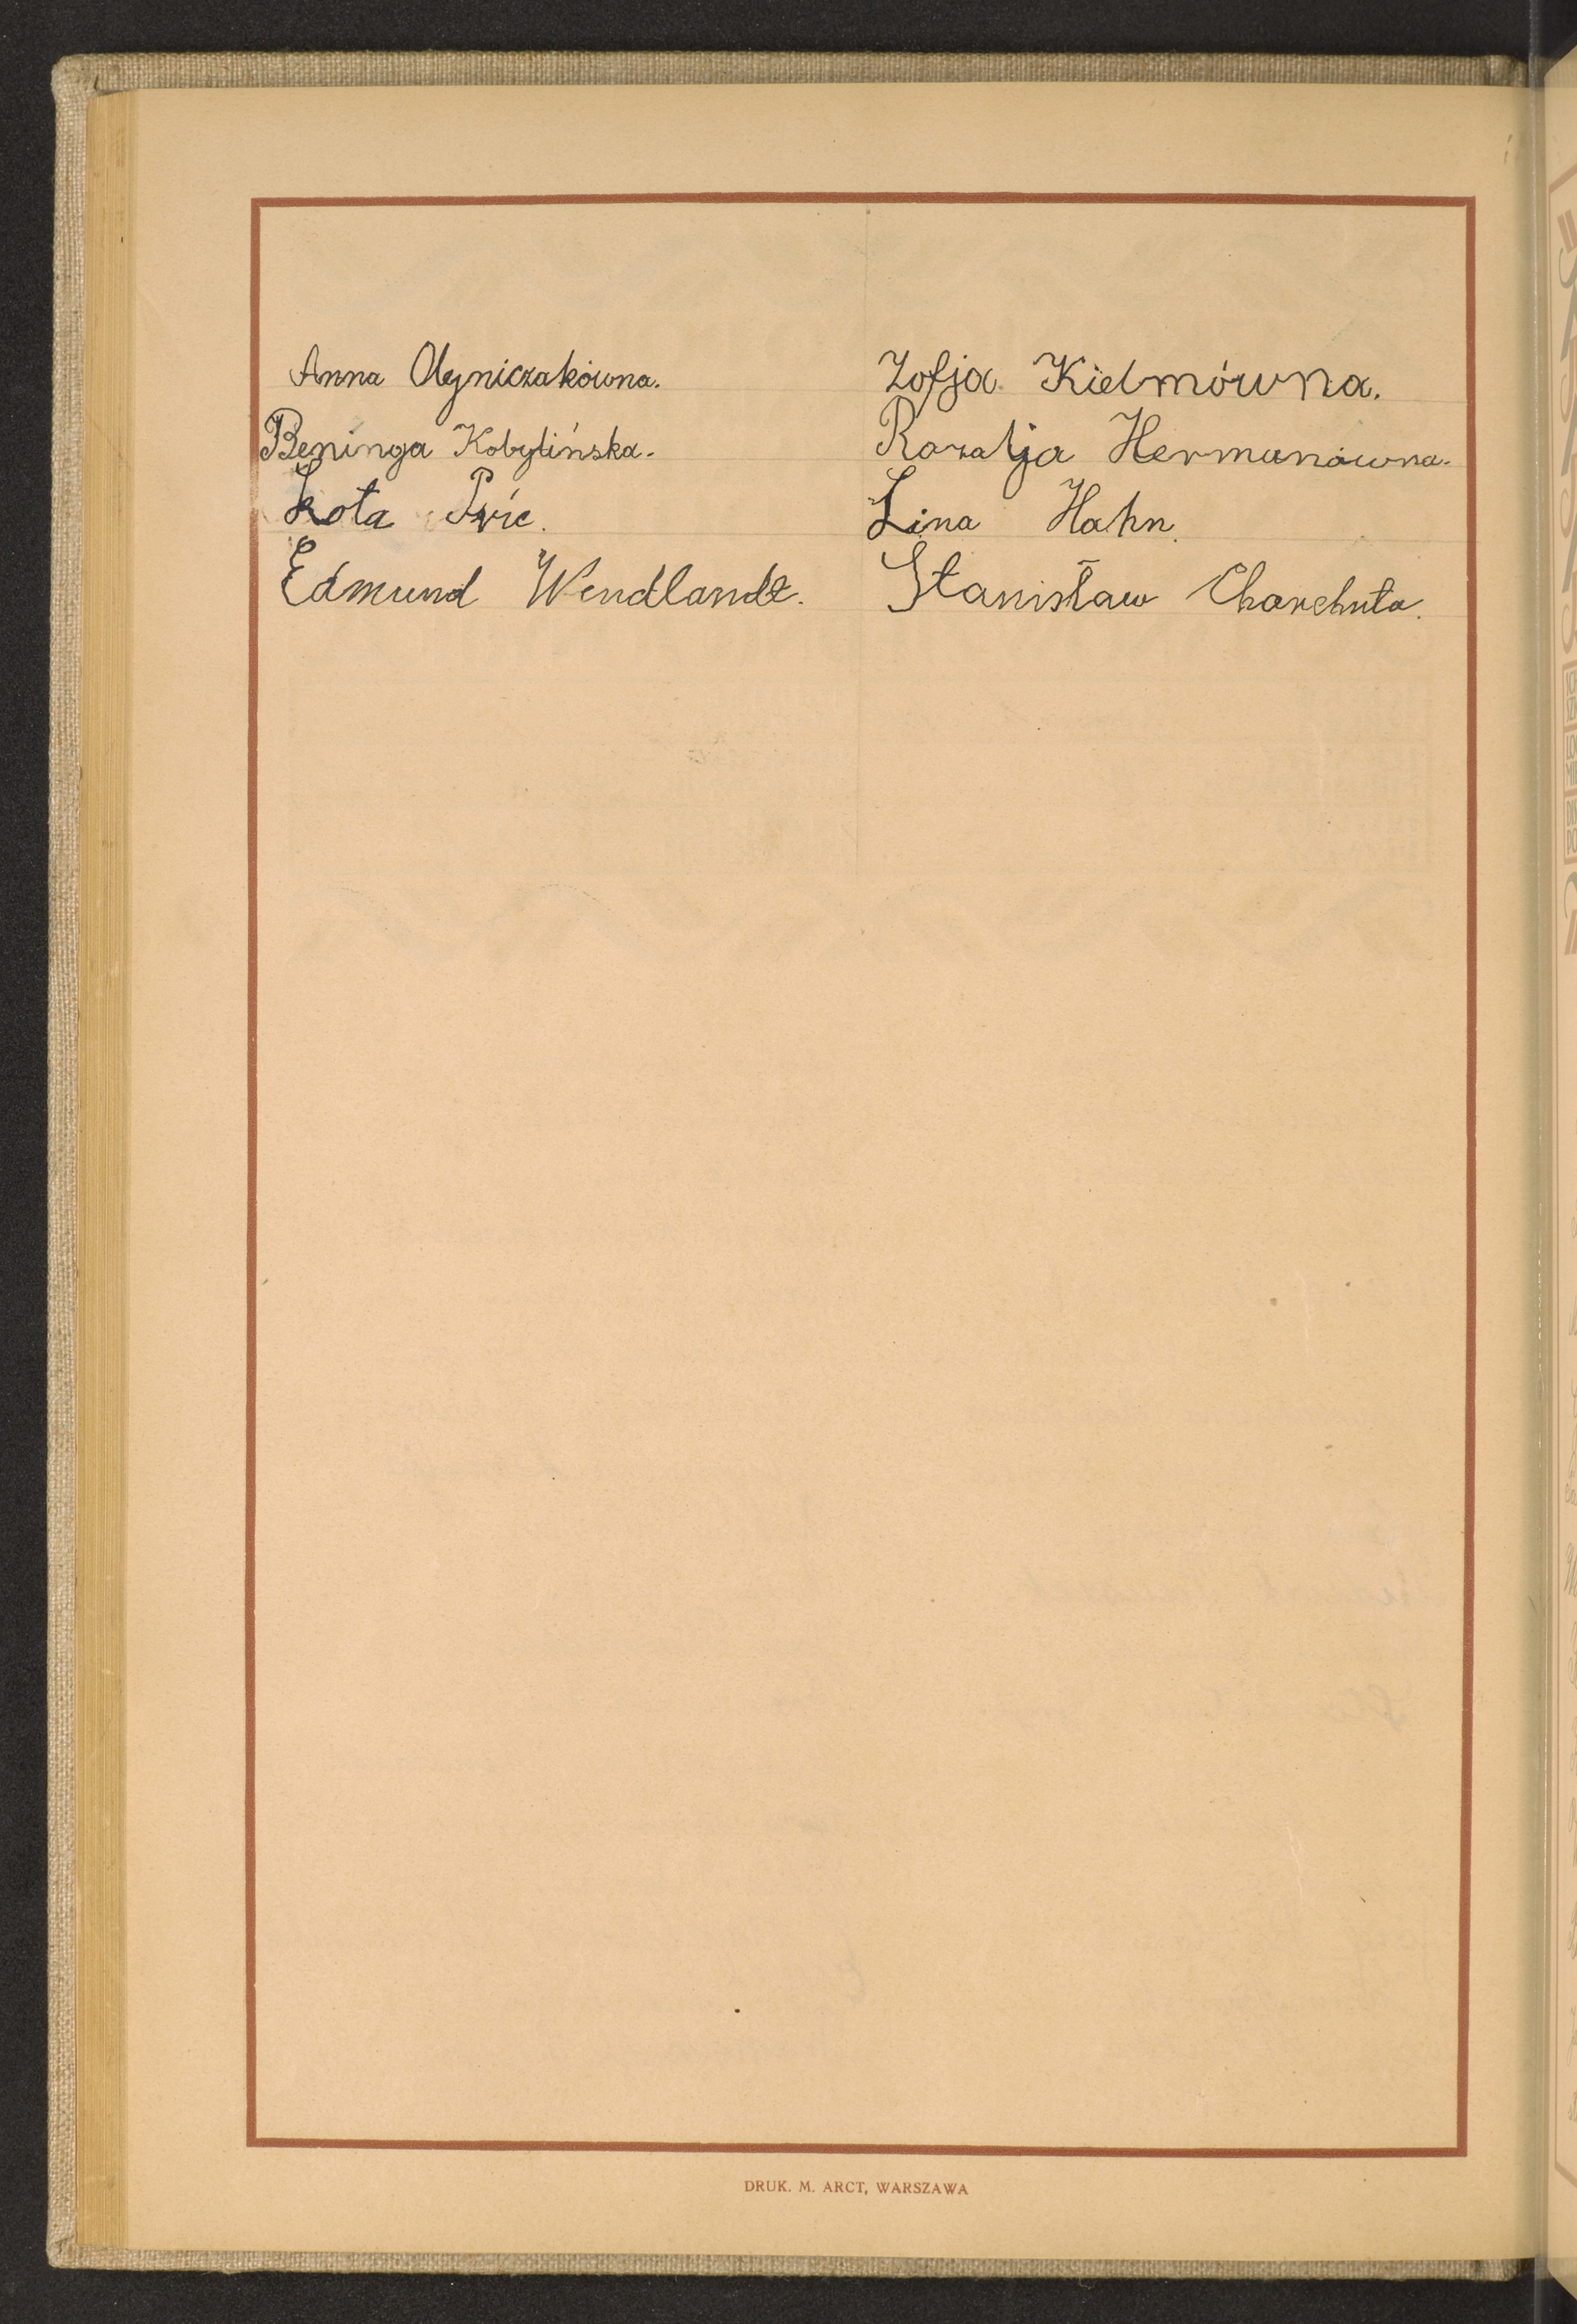 Anna Olejniczakówna.
Beninga Kobylińska.
Lota Pric.
Edmund Wendlandt.
Zofja Kielmówna.
Rozalja Hermanówna.
Lina Hahn.
Stanisław Charchuta.
DRUK. M. ARCT, WARSZAWA